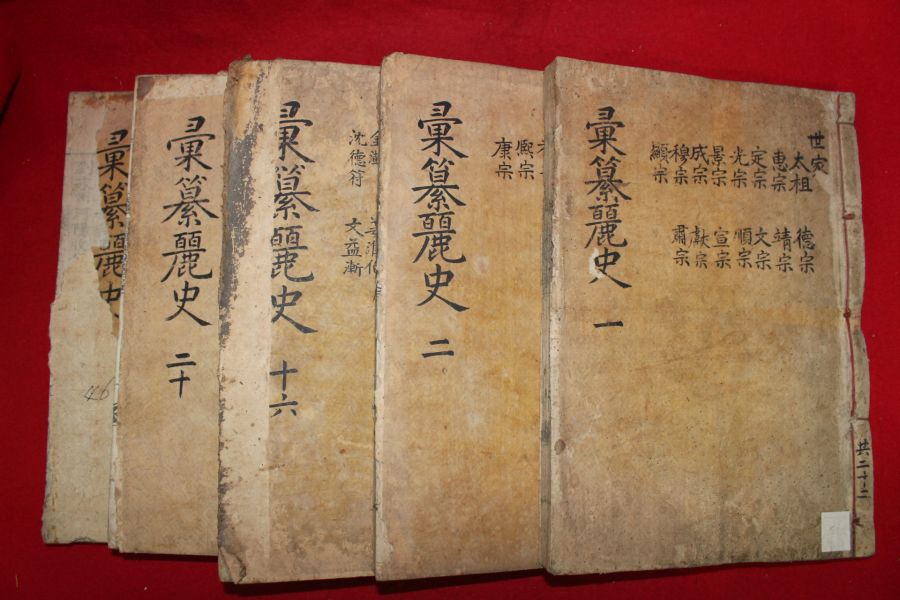 世家
太祖 德宗
惠宗 靖宗
定宗 文宗
光宗 順宗
景宗 宣宗
成宗 獻宗
穆宗 肅宗
顯宗
彙纂麗史 一
共二十二
熙宗
康宗
彙纂麗史 二
沈德符 文益漸
彙纂麗史 十六
彙纂麗史 二十
彙纂麗史
46